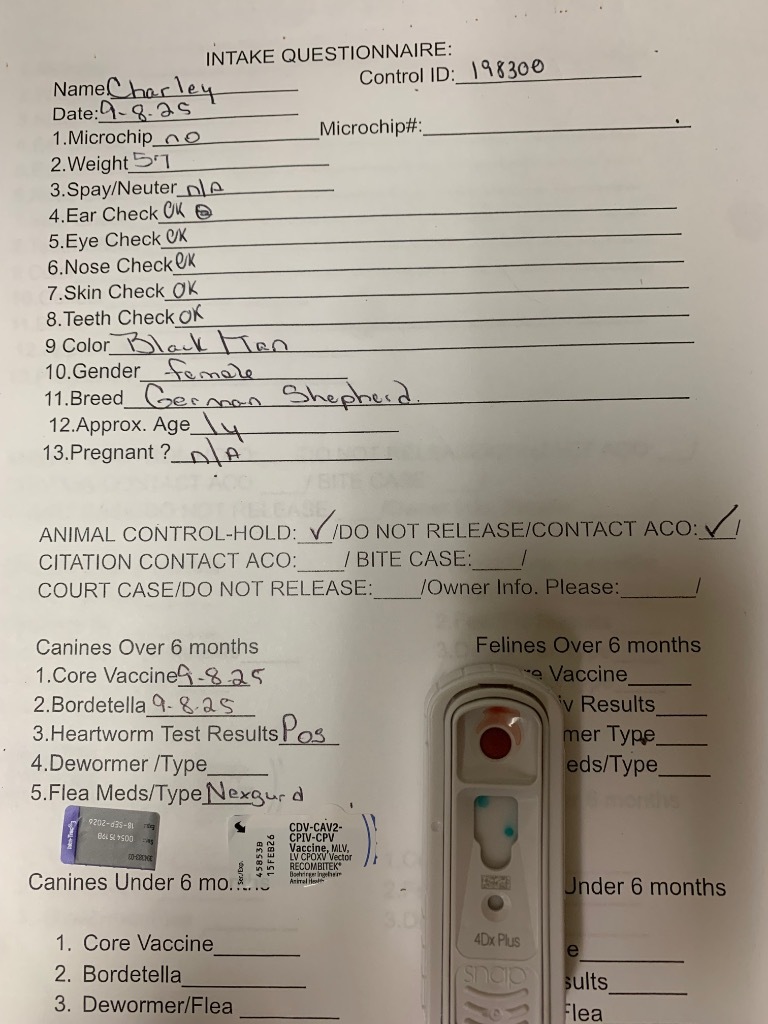 INTAKE QUESTIONNAIRE:
Name Charley Control ID: 198300
Date: 9-8-25
1.Microchip no Microchip#:
2.Weight 57
3.Spay/Neuter n/A
4.Ear Check OK
5.Eye Check OK
6.Nose Check OK
7.Skin Check OK
8.Teeth Check OK
9 Color Black / Tan
10.Gender female
11.Breed German Shepherd.
12.Approx. Age 1y
13.Pregnant ? n/A
ANIMAL CONTROL-HOLD: ✓/DO NOT RELEASE/CONTACT ACO: ✓/
CITATION CONTACT ACO:____/ BITE CASE:____/
COURT CASE/DO NOT RELEASE:____/Owner Info. Please:______/
Canines Over 6 months
1.Core Vaccine 9-8-25
2.Bordetella 9-8-25
3.Heartworm Test Results Pos
4.Dewormer /Type
5.Flea Meds/Type Nexgurd
18-SEP-2026
Ser/Exp.
45853B
15FEB26
CDV-CAV2-
CPIV-CPV
Vaccine, MLV,
LV CPOXV Vector
RECOMBITEK®
Boehringer Ingelheim
Animal Health
Canines Under 6 mo
1. Core Vaccine
2. Bordetella
3. Dewormer/Flea
Felines Over 6 months
re Vaccine
v Results
mer Type
eds/Type
Under 6 months
e
sults
Flea
4Dx Plus
snap